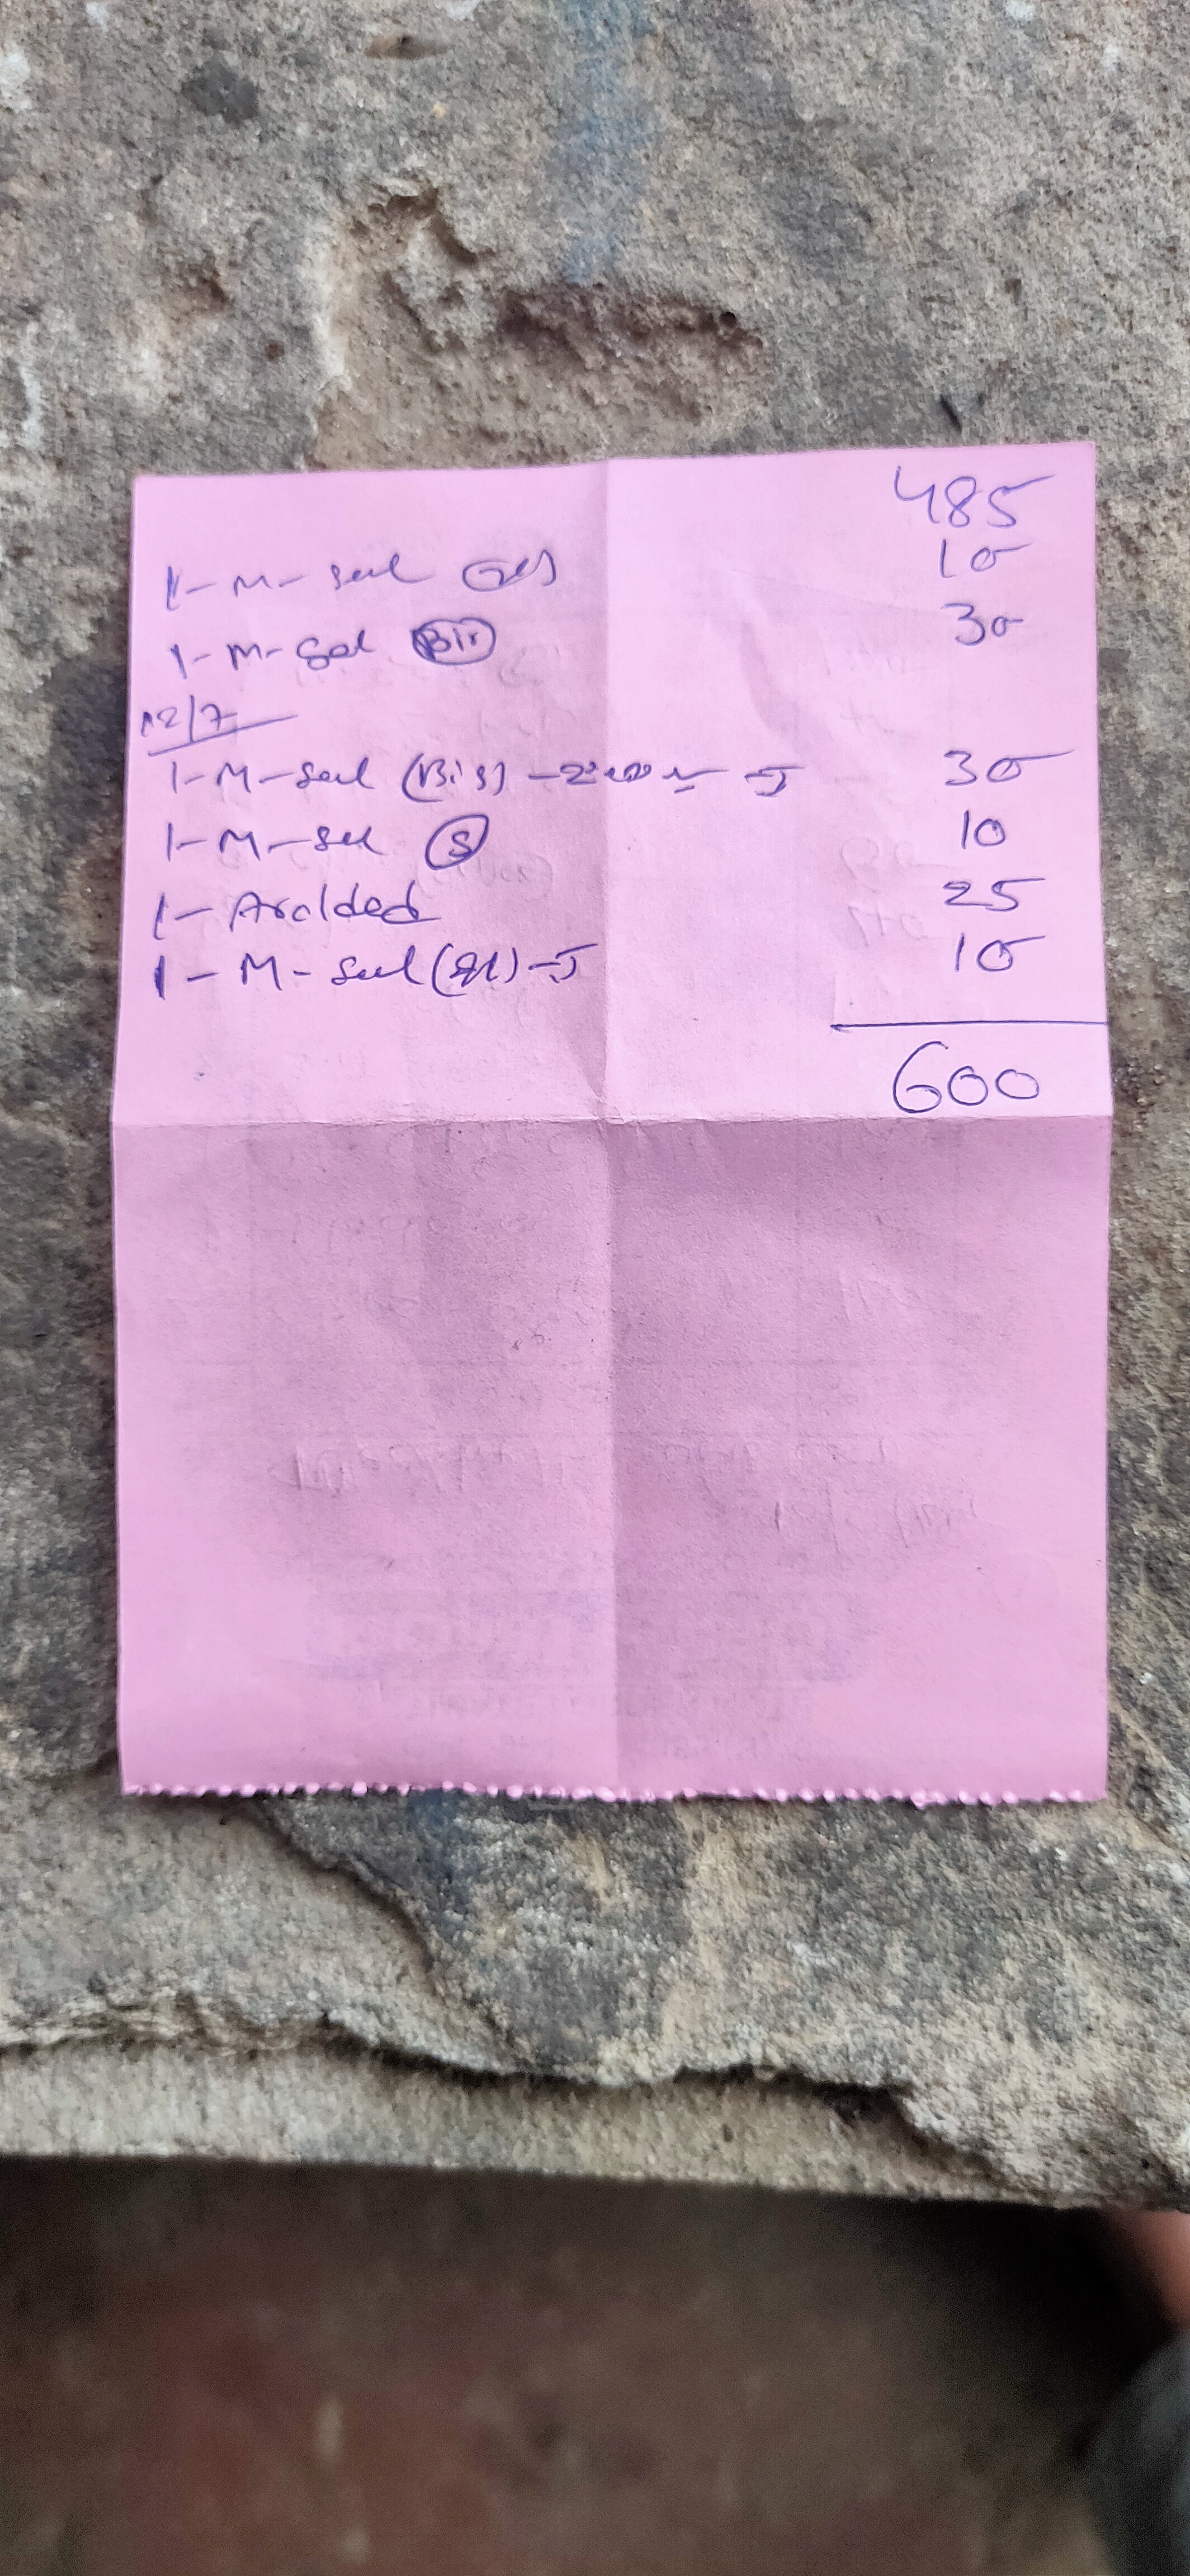 485
1- M- seal 10
1- M- Seal 30
12/7
1-M-seal (Big) 30
1-M-seal (S) 10
1- Aralded 25
1- M- seal 10
600